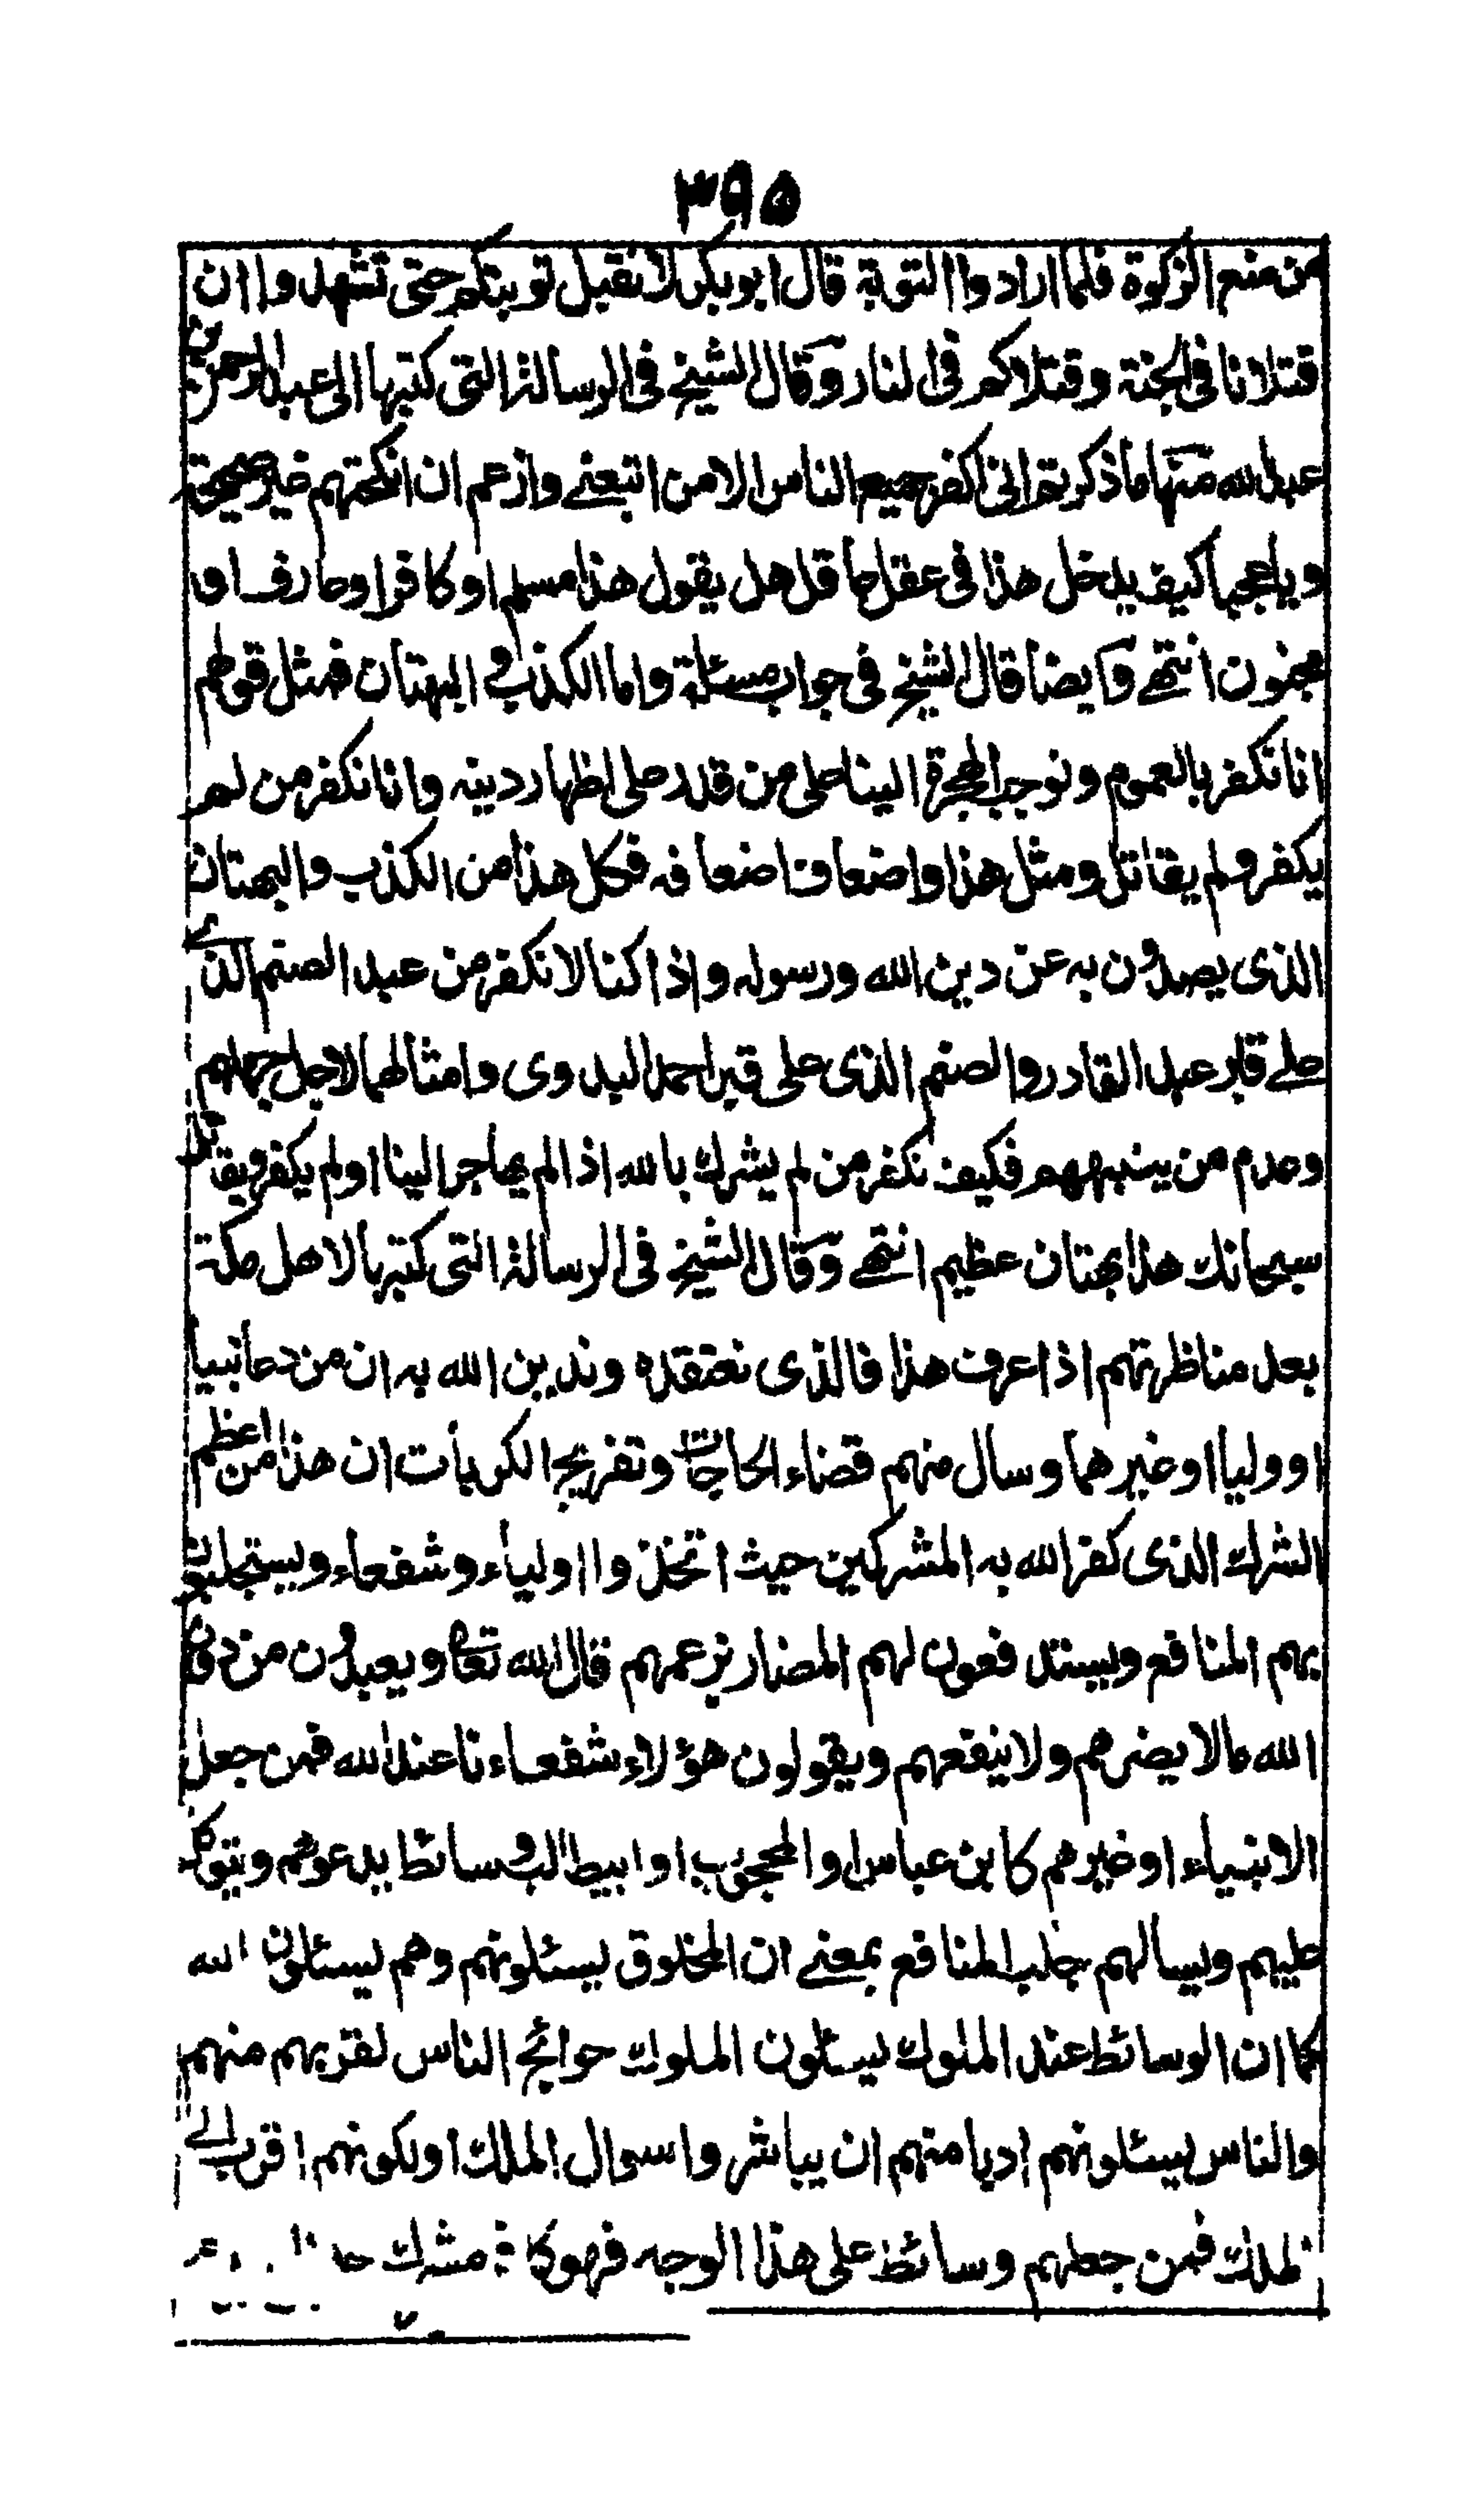 ٣٩٥
من منع الزكوة فلما ارادوا التوبة قال ابو بكر لا نقبل توبتكم حتى تشهدوا ان
قتلانا في الجنة وقتلاكم في النار وقال الشيخ في الرسالة التي كتبها الى عبد الرحمن بن
عبد الله منها ما ذكرتم اني اكفر جميع الناس الا من اتبعني وازعم ان انكحتهم غير صحيحة
ويا عجبا كيف يدخل هذا في عقل عاقل هل يقول هذا مسلم او كافر او عارف او
مجنون انتهى وايضا قال الشيخ في جواب مسئلة واما الكذب و البهتان فمثل قولهم
انا نكفر بالعموم ونوجب الهجرة الينا على من قدر على اظهار دينه وانا نكفر من لم
يكفر ولم يقاتل ومثل هذا واضعاف اضعافه فكل هذا من الكذب والبهتان
الذي يصدون به عن دين الله ورسوله واذا كنا لا نكفر من عبد الصنم الذي
على قبر عبد القادر والصنم الذي على قبر احمد البدوي وامثالهما لاجل جهلهم
وعدم من ينبههم فكيف نكفر من لم يشرك بالله اذا لم يهاجر الينا او لم يكفر ويقاتل
سبحانك هذا بهتان عظيم انتهى وقال الشيخ في الرسالة التي كتبها لاهل مكة
بعد مناظرتهم اذا عرف هذا فالذي نعتقده وندين الله به ان من دعا نبيا
او وليا او غيرهما وسال منهم قضاء الحاجات وتفريج الكربات ان هذا من اعظم
الشرك الذي كفر الله به المشركين حيث اتخذوا اولياء وشفعاء ويستجلبون
بهم المنافع ويستدفعون لهم المضار بزعمهم قال الله تعالى ويعبدون من دون
الله ما لا يضرهم ولا ينفعهم ويقولون هؤلاء شفعاءنا عند الله فمن جعل
الانبياء او غيرهم كابن عباس او المحجوب او ابيطالب وسائط يدعوهم ويتوكل
عليهم ويسالهم جلب المنافع بمعنى ان المخلوق يسئلونهم وهم يسئلون الله
كما ان الوسائط عند الملوك يسئلون الملوك حوائج الناس لقربهم منهم
والناس يسئلونهم ادبا منهم ان يباشروا سوال الملك او لكونهم اقرب الى
الملك فمن جعلهم وسائط على هذا الوجه فهو كافر مشرك